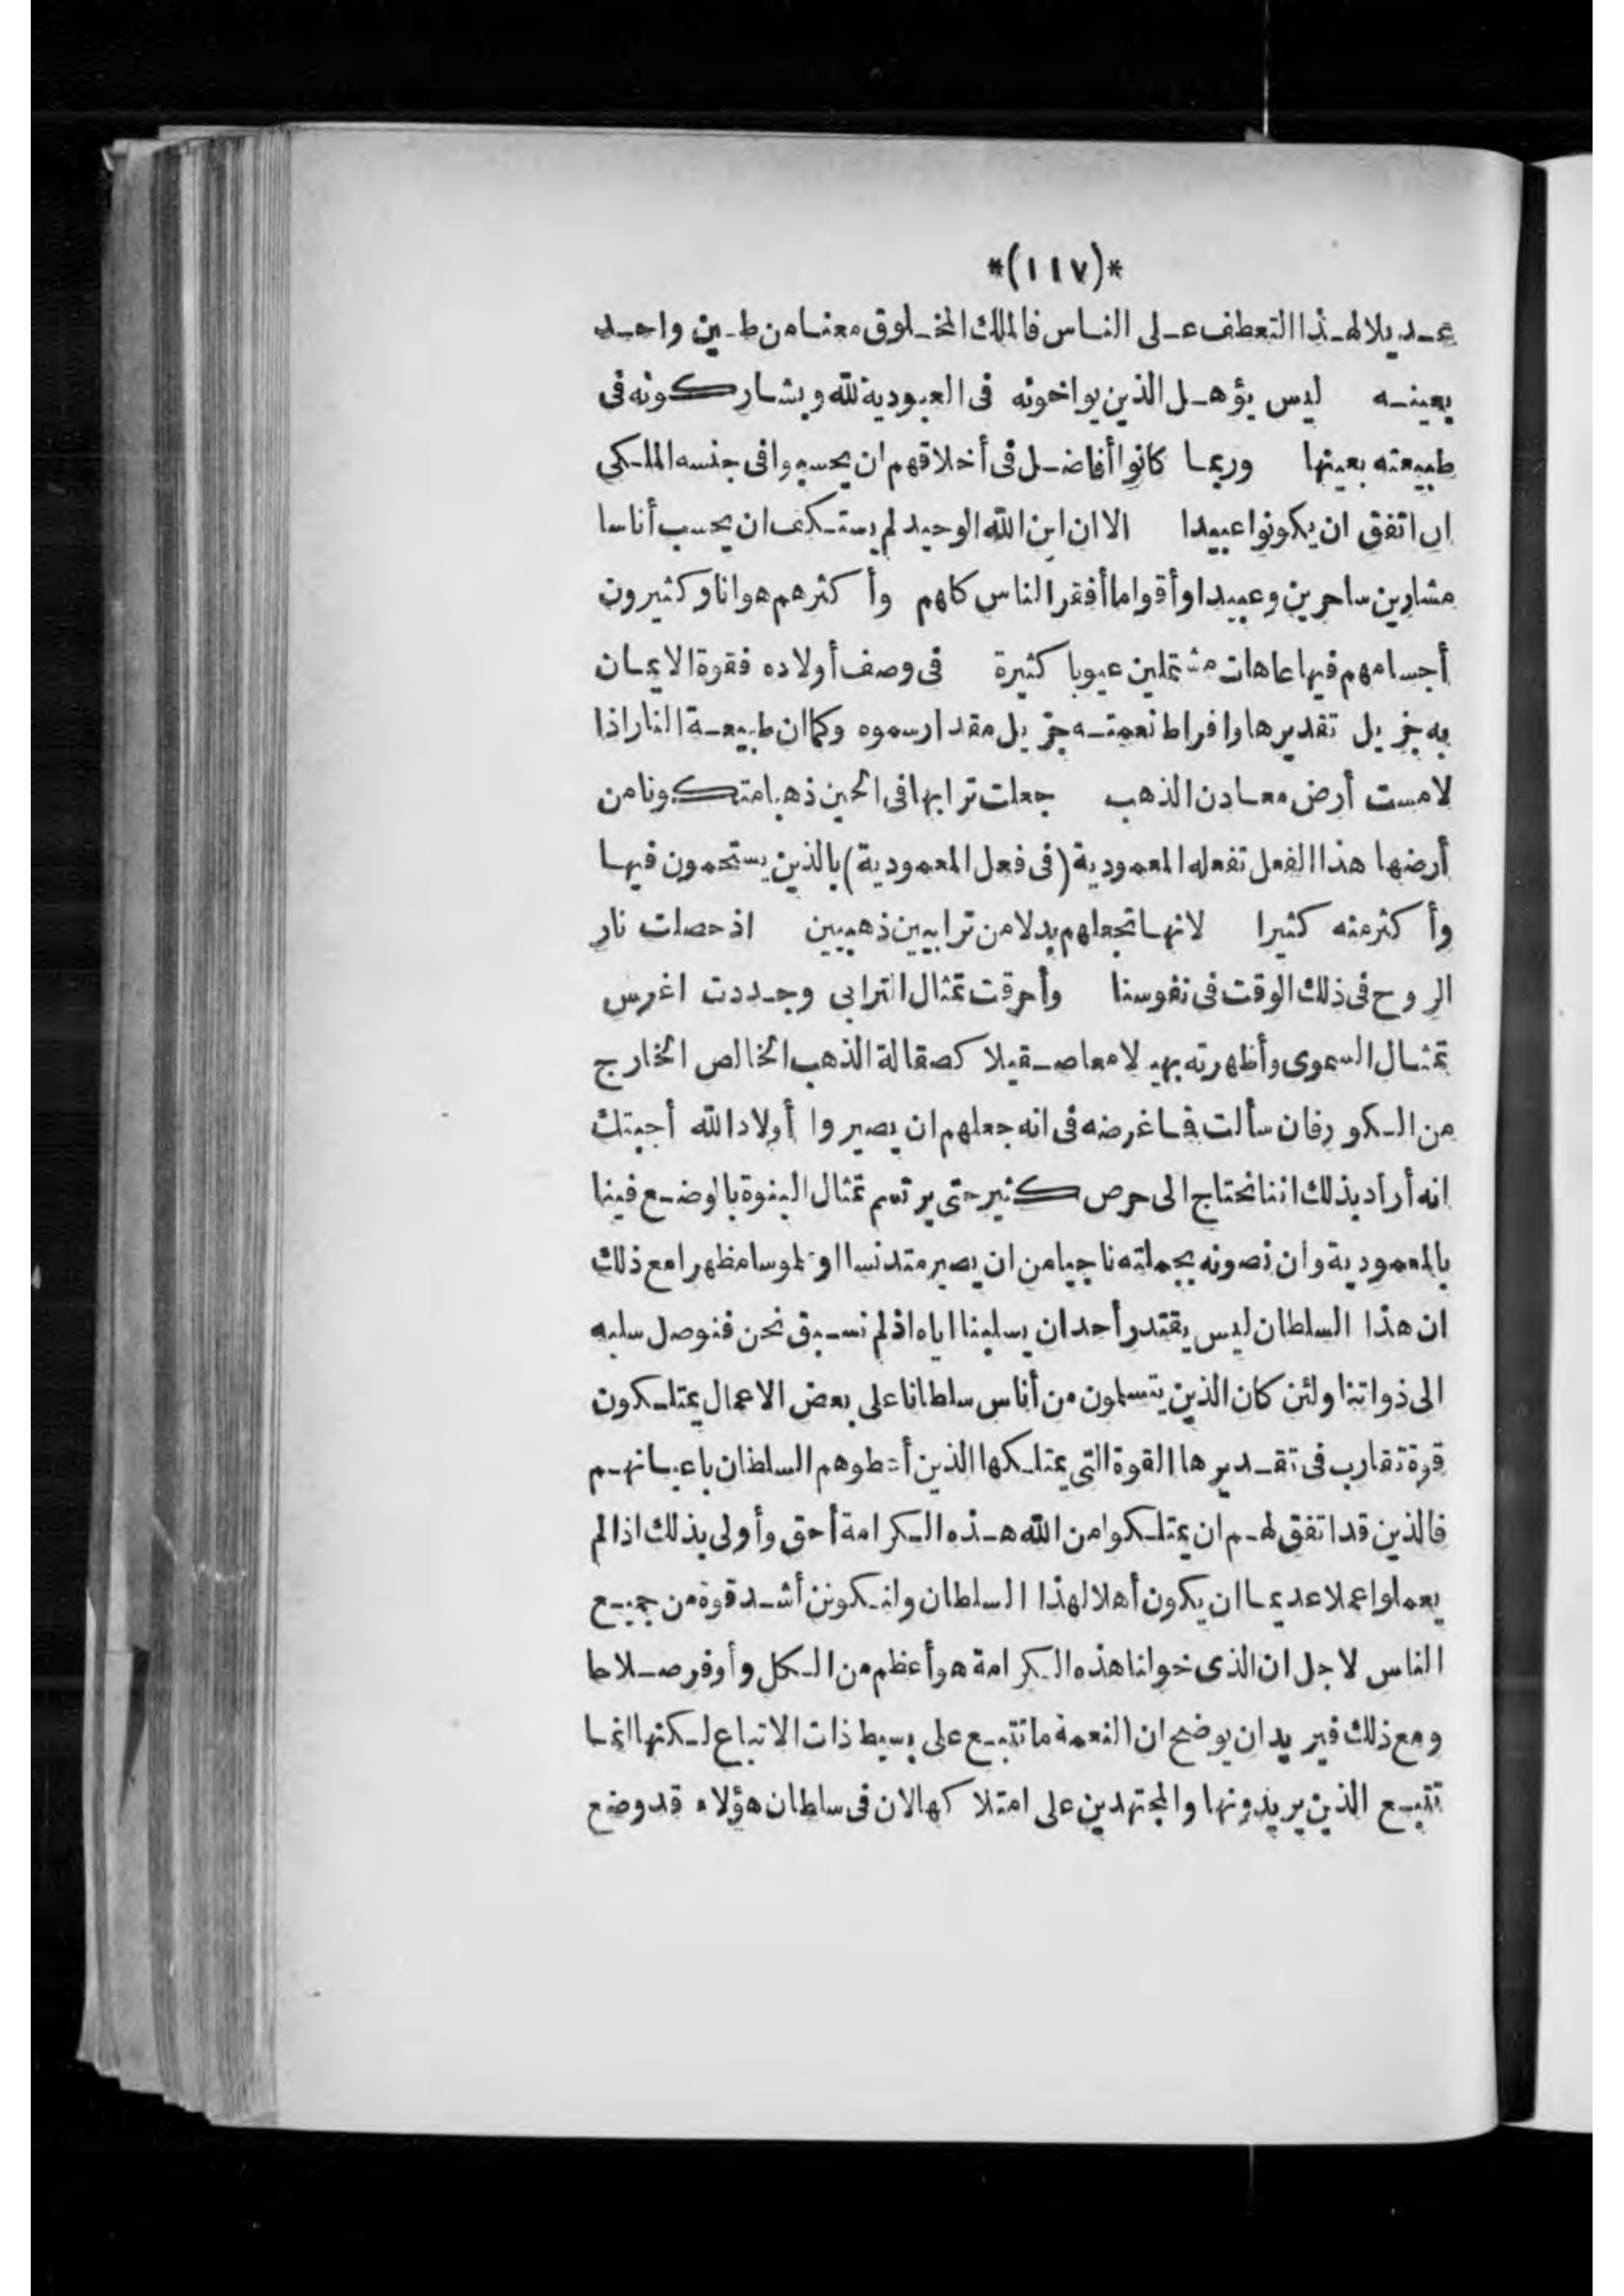 *(١١٧)*
عديلا لهذا التعطف على الناس فالملك المخلوق معنا من طين واحد
بعينه ليس يؤهل الذين يواخونه فى العبودية لله ويشاركونه فى
طبيعته بعينها وربما كانوا أفاضل فى أخلاقهم ان يحسبوا فى جنسه الملكى
ان اتفق ان يكونوا عبيدا الا ان ابن الله الوحيد لم يستنكف ان يحسب أناسا
عشارين ساحرين وعبيدا وأقواما أفقر الناس كلهم وأكثرهم هوانا وكثيرون
أجسامهم فيها عاهات مشتملين عيوبا كثيرة فى وصف أولاده فقوة الايمان
به جزيل تقديرها وافراط نعمته جزيل مقدار سموه وكما ان طبيعة النار اذا
لامست أرض معادن الذهب جعلت ترابها فى الحين ذهبا متكونا من
أرضها هذا الفعل تفعله المعمودية (فى فعل المعمودية) بالذين يستحمون فيها
وأكثر منه كثيرا لانها تجعلهم بدلا من ترابيين ذهبيين اذ حصلت نار
الروح فى ذلك الوقت فى نفوسنا وأحرقت تمثال الترابى وجددت اغرس
تمثال السموى وأظهرته بهيا لامعا صقيلا كصقالة الذهب الخالص الخارج
من الكور فان سألت فما غرضه فى انه جعلهم ان يصيروا أولاد الله أجبتك
انه أراد بذلك اننا نحتاج الى حرص كثير حتى يرتسم تمثال البنوة بالوضع فينا
بالمعمودية وان نصونه بجملته ناجيا من ان يصير متدنسا او ملموسا مظهرا مع ذلك
ان هذا السلطان ليس يقتدر أحد ان يسلبنا اياه اذ لم نسبق نحن فنوصل سلبه
الى ذواتنا ولئن كان الذين يتسلمون من أناس سلطانا على بعض الاعمال يمتلكون
قوة تقارب فى تقديرها القوة التى يمتلكها الذين أعطوهم السلطان باعيانهم
فالذين قد اتفق لهم ان يمتلكوا من الله هذه الكرامة أحق وأولى بذلك اذا لم
يعملوا عملا عديما ان يكون أهلا لهذا السلطان ولنكونن أشد قوة من جميع
الناس لاجل ان الذى خولنا هذه الكرامة هو أعظم من الكل وأوفر صلاحا
ومع ذلك فيريد ان يوضح ان النعمة ما تتبع على بسيط ذات الاتباع لكنها انما
تتبع الذين يريدونها والمجتهدين على امتلاكها لان فى سلطان هؤلاء قد وضع